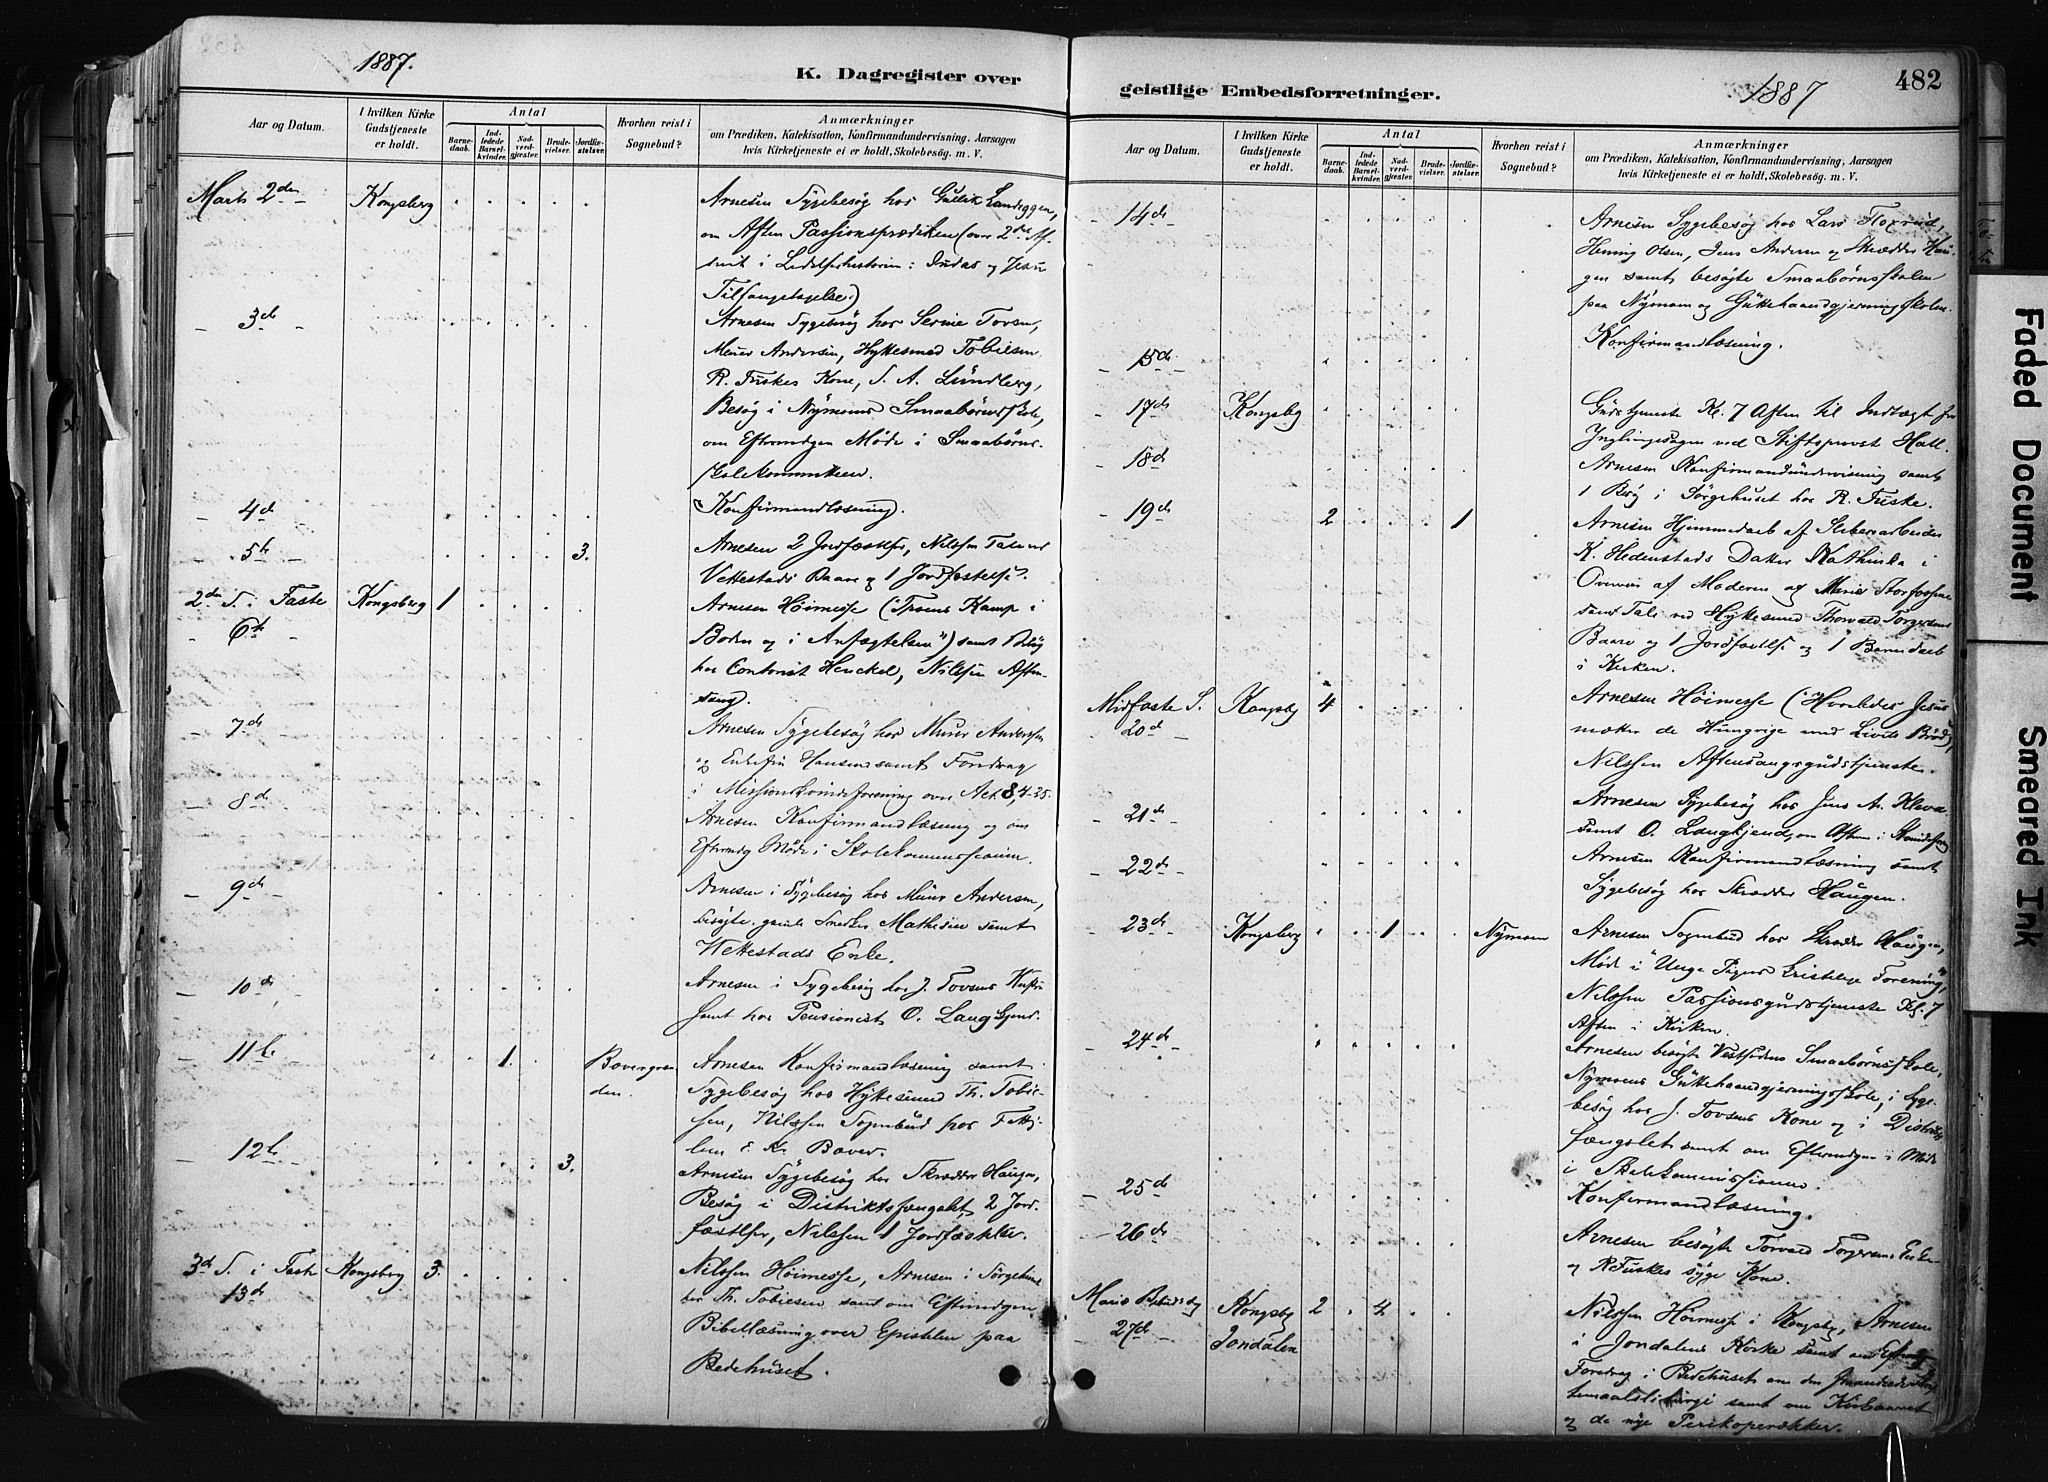 1887.
K. Dagregister over
Aar og Datum.
I hvilken Kirke
Gudstjeneste
er holdt.
Antal
Barne-
daab.
Ind-
ledede
Barsel-
kvinder.
Nad-
verd-
gjæster.
Brude-
vielser.
Jordfæ-
stelser.
Hvorhen reist i
Sognebud?
Anmærkninger
om Prædiken, Katekisation, Konfirmandundervisning, Aarsagen
hvis Kirketjeneste ei er holdt, Skolebesøg. m. V.
Marts 2den Kongsberg
Arnesen Sygebesøg hos Gullik Landeggen,
om Aften Passionsprædiken (over 2det Af-
snit i Lidelseshistorien: Judas og Jesu
Tilfangetagelse.)
3de
Arnesen Sygebesøg hos Serine Tovsen,
Murer Andersen, Hyttesmed Tobiesen
R. Fuskes Kone, S. A. Lundberg,
Besøg i Nymoens Smaabørnsskole,
om Eftermdgen Møde i Smaabørns-
skolekommitteen.
4de
Konfirmandlæsning.
5te 3.
Arnesen 2 Jordfæstlser, Nilssen Tale ved
Vettestads Baare og 1 Jordfæstelse.
2den S. i Faste Kongsberg 1
6te
Arnesen Høimesse (Troens Kamp i
Boden og i Anfægtelsen") samt Besøg
hos Contorist Henckel, Nilssen Aften-
sang.
7de
Arnesen Sygebesøg hos Murer Andersen
og Enkefru Hansen samt Foredrag
i Missionskvindeforening over Act 8,4-25.
8de
Arnesen Konfirmandlæsning og om
Eftermdg Møde i Skolekommissionen.
9de
Arnesen i Sygebesøg hos Murer Andersen,
besøgte gamle Snedker Mathisen samt
Wettestads Enke.
10de
Arnesen i Sygebesøg hos J. Tovsens Hustru
samt hos Pensionist O. Langkjend.
11te 1. Bævergran-
den.
Arnesen Konfirmandlæsning samt
Sygebesøg hos Hyttesmed Th. Tobie-
sen, Nilssen Sognebud hos Fattig-
lem E. Kr. Bæver.
12te 3.
Arnesen Sygebesøg hos Skrædder Haugen,
Besøg i Distriktsfængslet, 2 Jord-
fæstlser, Nilssen 1 Jordfæstelse.
3die S. i Faste Kongsberg 3.
13de
Nilssen Høimesse, Arnesen i Sørgehuset
hos Th. Tobiesen samt om Eftermdgen
Bibellæsning over Epistelen paa
Bedehuset.
geistlige Embedsforretninger.
1887
482
Aar og Datum.
I hvilken Kirke
Gudstjeneste
er holdt.
Antal
Barne-
daab.
Ind-
ledede
Barsel-
kvinder.
Nad-
verd-
gjæster.
Brude-
vielser.
Jordfæ-
stelser.
Hvorhen reist i
Sognebud?
Anmærkninger
om Prædiken, Katekisation, Konfirmandundervisning, Aarsagen
hvis Kirketjeneste ei er holdt, Skolebesøg. m. V.
14de
Arnesen Sygebesøg hos Lars
Henning Olsen, Jens Andersen og Skrædder Hau-
gen samt besøgte Smaabørnsskolen
paa Nymoen og Guttehaandgjerningsskolen.
15de
Konfirmandlæsning.
17de Kongsbg
Gudstjeneste Kl. 7 Aften til Indtægt for
Ynglingesagen ved Stiftsprovst Hall.
18de
Arnesen Konfirmandundervisning samt
1 Besøg i Sørgehuset hos R. Fuske.
19de 2 1
Arnesen Hjemmedaab af Sliberarbeider
K. Hedenstads Datter Kathinka i
Overvær af Moderen og Marie Storfossen
samt Tale ved Hyttesmed Thorvald Torgersens
Baare og 1 Jordfæstlse og 1 Barnedaab
i Kirken.
Midfaste S. Kongsbg 4
20de
Arnesen Høimesse ("Hvorledes Jesus
mætter de Hungrige med Livets Brød",
Nilssen Aftensangsgudstjeneste.
21de
Arnesen Sygebesøg hos Jens A. Kleva
samt O. Langkjend, om Aftenen i
22de
Arnesen Konfirmandlæsning samt
Sygebesøg hos Skrædder Haugen.
23de Kongsberg 1 Nymoen
Arnesen Sognebud hos Skrædder Haugen,
Møde i "Unge Pigers kristelige Forening",
Nilssen Passionsgudstjeneste Kl. 7
Aften i Kirken.
24de
Arnesen besøgte Vestsidens Smaabørnsskole,
Nymoens Guttehaandgjerningsskole, i Syge-
besøg hos J. Tovsens Kone og i Distrikts-
fængslet samt om Eftermdgen i Møde
i Skolekommissionen.
25de
Konfirmandlæsning.
26de
Arnesen besøgte Torvald Torgersens Enke
og R. Fuskes syge Kone.
Mariæ Bebudelsesdg Kongsbg 2 4
27de Jondalen
Nilssen Høimesse i Kongsbg, Arnesen
i Jondalens Kirke samt om Eftmdg
Foredrag i Bedehuset om den forandrede
samt om
og de nye Perikoperækker.
Faded Document
Smeared Ink